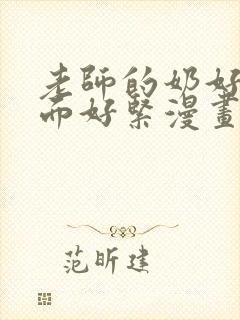 老師的奶好
而好緊漫畫
范昕建